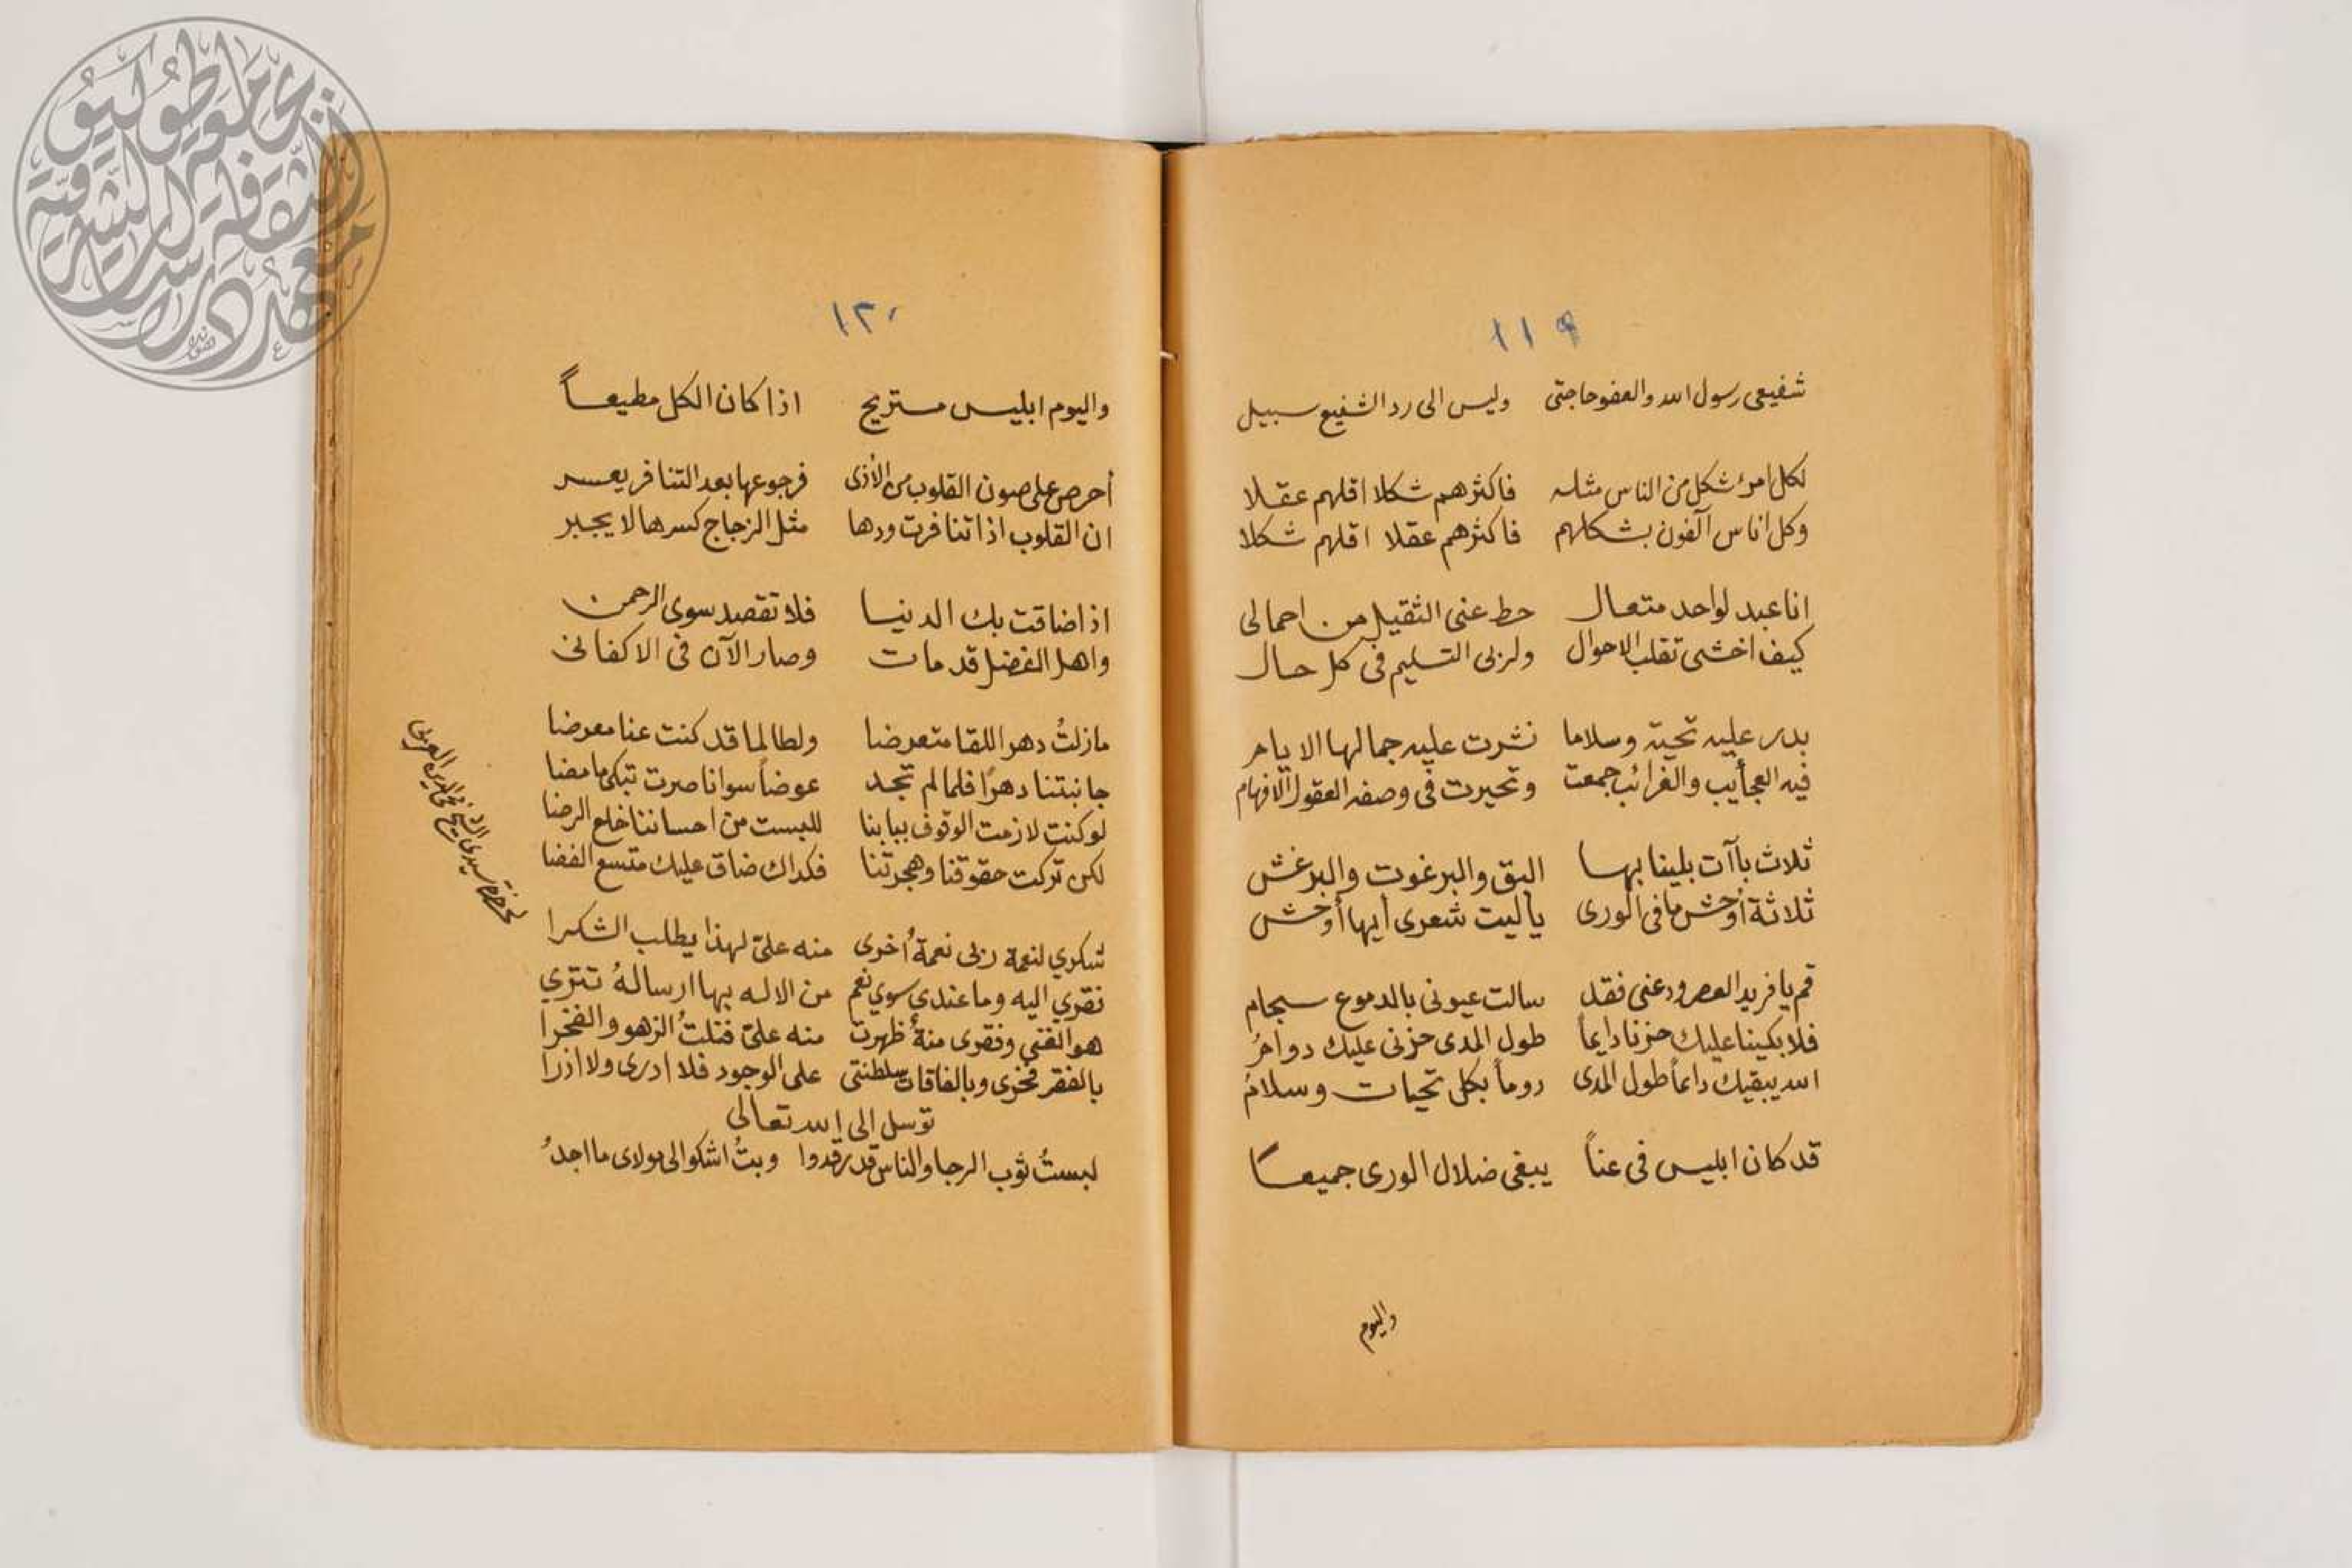 ١١٩
شفيعى رسول الله والعفو حاجتى وليس الى رد الشفيع سبيل
لكل امرئ شكل من الناس مثله فاكثرهم شكلا اقلهم عقلا
وكل اناس آلفون بشكلهم فاكثرهم عقلا اقلهم شكلا
انا عبد لواحد متعال حط عنى الثقيل من احمالى
كيف اخشى تقلب الاحوال ولربى التسليم فى كل حال
بدر عليه تحية وسلاما نشرت عليه جمالها الايام
فيه العجأيب والغرائب جمعت وتحيرت فى وصفه العقول الافهام
ثلاث باآت بلينا بها البق والبرغوت والبرغش
ثلاثة أوحش ما فى الورى ياليت شعرى أيها أوحش
قم يا فريد العصر ودعنى فقد سالت عيونى بالدموع سجام
فلا بكينا عليك حزنا دايماً طول المدى حزنى عليك دوامُ
الله يبقيك دائماً طول المدى دوماً بكل تحيات وسلامُ
قد كان ابليس فى عناً يبغى ضلال الورى جميعاً
واليوم
١٢٠
واليوم ابليس مستريح اذا كان الكل مطيعاً
أحرص على صون القلوب من الأذى فرجوعها بعد التنافر يعسر
ان القلوب اذا تنافرت ودها مثل الزجاج كسرها لا يجبر
اذا ضاقت بك الدنيا فلا تقصد سوى الرحمن
واهل الفضل قد مات وصار الآن فى الاكفانى
مازلتُ دهرا للقا متعرضا ولطالما قد كنت عنا معرضا
جانبتنا دهرًا فلما لم تجد عوضاً سوانا صرت تبكى ما مضا
لو كنت لازمت الوقوف ببابنا للبست من احساننا خلع الرضا
لكن تركت حقوقنا وهجرتنا فكداك ضاق عليك متسع الفضا
شكري لنعمة ربى نعمةُ أخرى منه علىّ لهذا يطلب الشكرا
فقري اليه وما عندى سوي نعم من الاله بها ارسالهُ تترى
هو الغنى وفقرى منهُ ظهرت منه علىّ فنلتُ الزهو والفخرا
بالفقر فخرى وبالفاقات سلطنتى على الوجود فلا ادرى ولا ادرا
توسل الى الله تعالى
لبستُ ثوب الرجا والناس قد رقدوا وبتُ اشكو الى مولاى ما اجدُ
سيدى الشيخ محى الدين العربى